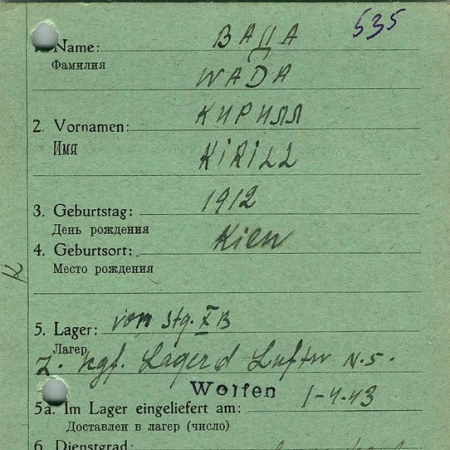 535
1. Name: ВАДА
Фамилия
WADA
2. Vornamen: КИРИЛЛ
Имя
KiRiLL
3. Geburtstag: 1912
День рождения
4. Geburtsort: Kien
Место рождения
K
5. Lager: vom Stg. X B
Лагерь
z. kgf. Lager d Luftw N.5.
Wolfen
5a. Im Lager eingeliefert am: 1-4.43
Доставлен в лагерь (число)
6. Dienstgrad: